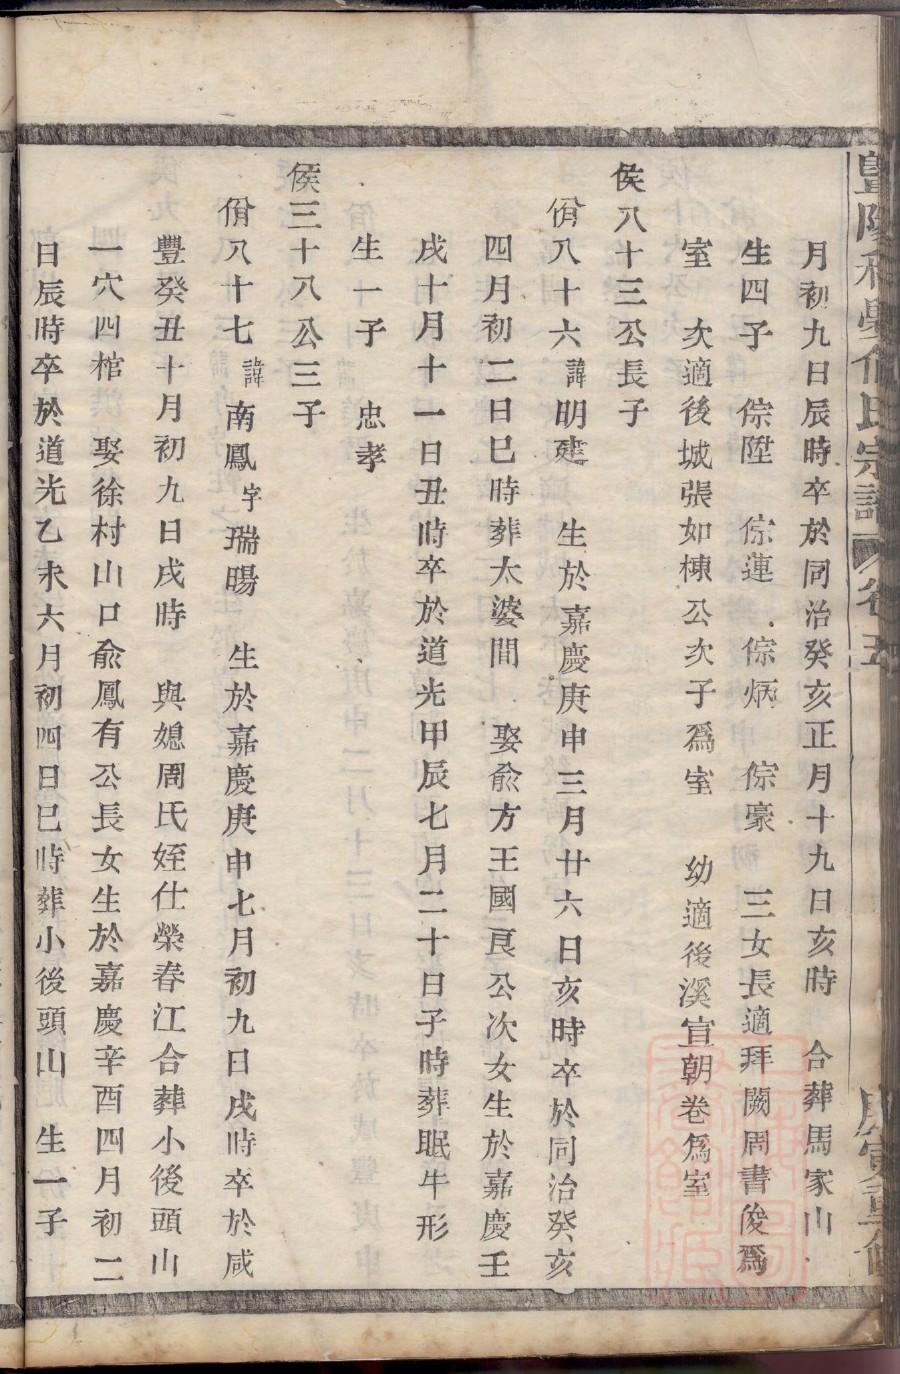 月初九日辰時卒於同治癸亥正月十九日亥時 合葬馬家山
生四子 倧陞 倧蓮 倧炳 倧豪 三女長適拜闕周書俊爲
室 次適後城張如棟公次子爲室 幼適後溪宣朝卷爲室
侯八十三公長子
佾八十六諱明建 生於嘉慶庚申三月廿六日亥時卒於同治癸亥
四月初二日巳時葬太婆間 娶俞方王國良公次女生於嘉慶壬
戌十月十一日丑時卒於道光甲辰七月二十日子時葬眠牛形
生一子 忠孝
侯三十八公三子
佾八十七諱南鳳字瑞暘 生於嘉慶庚申七月初九日戌時卒於咸
豐癸丑十月初九日戌時 與媳周氏姪仕榮春江合葬小後頭山
一穴四棺 娶徐村山口俞鳳有公長女生於嘉慶辛酉四月初二
日辰時卒於道光乙未六月初四日巳時葬小後頭山 生一子